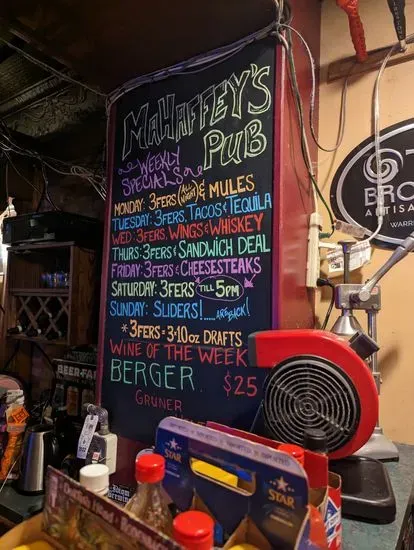 MAHAFFEY'S
PUB
WEEKLY
SPECIALS
MONDAY: 3FERS (ALL NIGHT) & MULES
TUESDAY: 3FERS, TACOS & TEQUILA
WED: 3FERS, WINGS & WHISKEY
THURS: 3FERS & SANDWICH DEAL
FRIDAY: 3FERS & CHEESESTEAKS
SATURDAY: 3FERS TILL 5PM
SUNDAY: SLIDERS!.....ARE BACK!
*3FERS = 3-10oz DRAFTS
WINE OF THE WEEK
BERGER $25
GRÜNER
BRO
ARTISA
WARR
BEER-FA
STAR
STAR